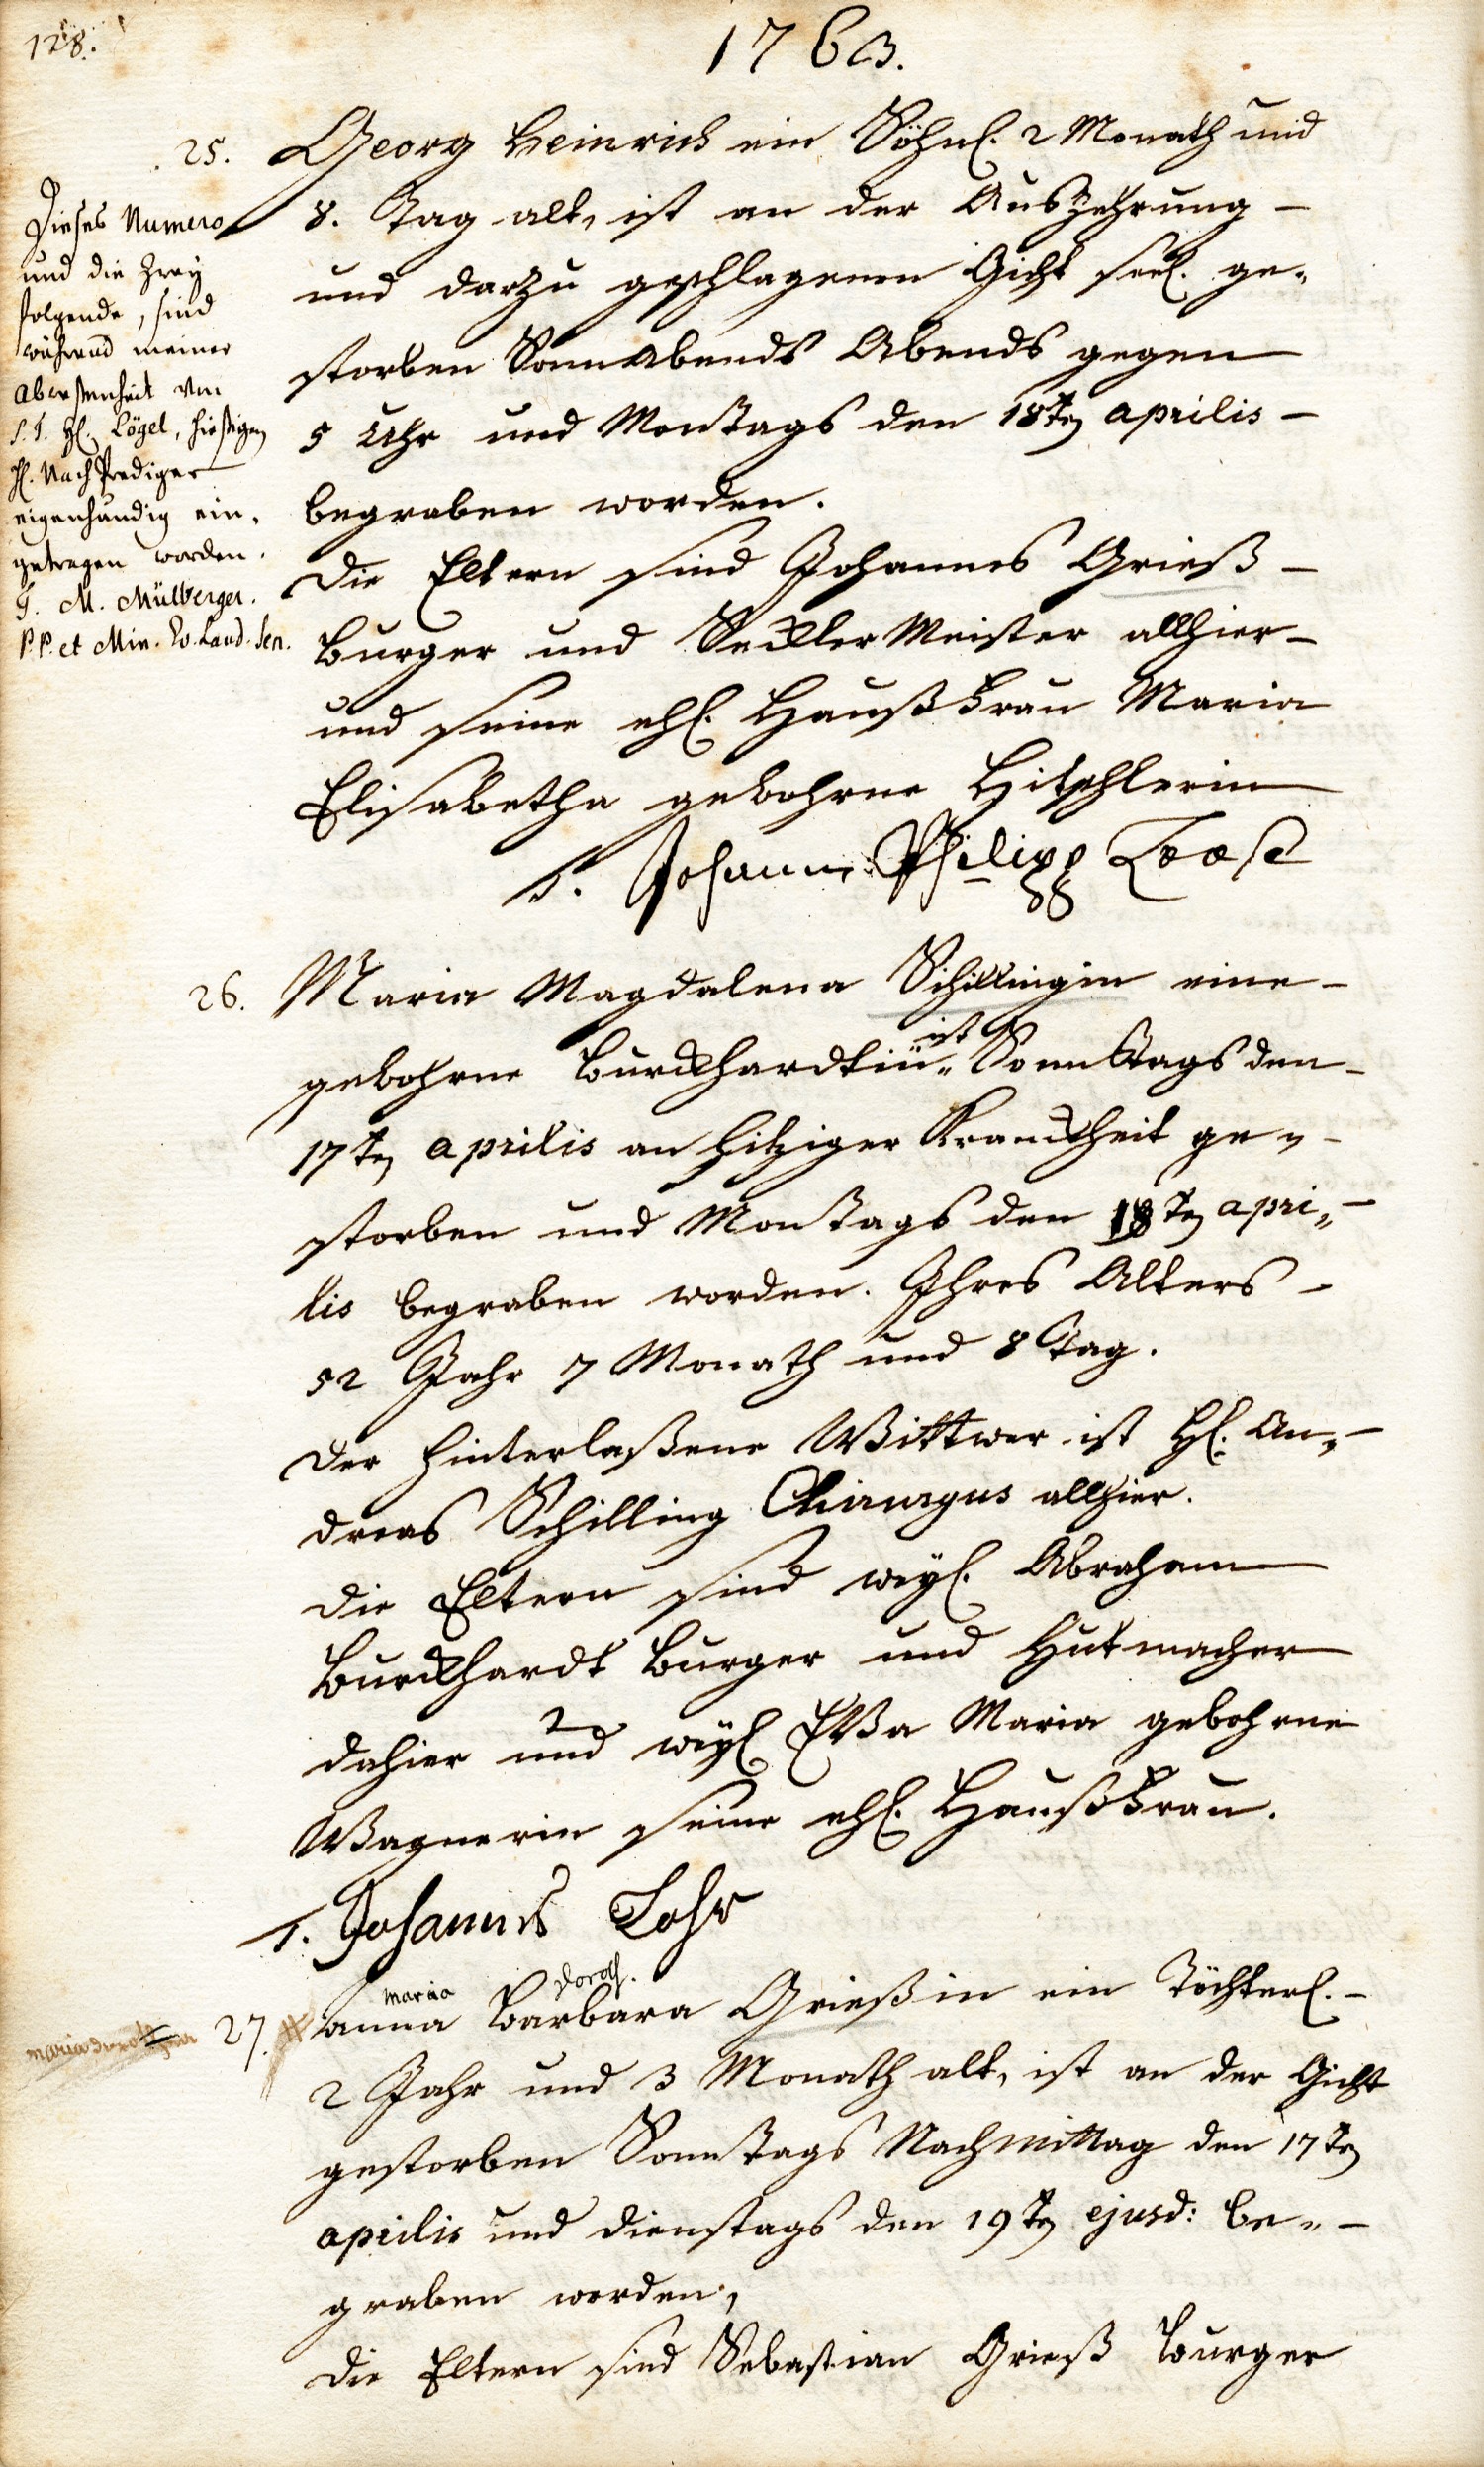 128.
1763.
25.
Georg Heinrich ein Söhnl. 2 Monath und
8. Tag alt, ist an der Auszehrung –
und darzu geschlagenen Gicht seel. ge-
storben Sonnabends Abends gegen
5 Uhr und Montags den 18ten aprilis –
begraben worden.
Die Eltern sind Johannes Grieß –
Burger und Seckler Meister allhier –
und seine ehl. Haußfrau Maria
Elisabetha gebohrne Hitschlerin
T. Johann Philipp Loose
Dieses Numero
und die zwey
folgende, sind
während meiner
Abweßenheit von
S. T. Hl. Lögel, hießigen
Hl. Nach Prediger
eigenhändig ein-
getragen worden.
G. M. Mülberger.
P. P. et Min. Ev. Land. Sen.
26.
Maria Magdalena Schillingin eine –
gebohrne Burckhardtin ist Sonntags den –
17ten aprilis an hitziger Kranckheit ge- –
storben und Montags den 18ten apri- –
lis begraben worden. Ihres Alters –
52 Jahr 7 Monath und 8 Tag.
Der hinterlaßene Wittwer ist Hl. An- –
dreas Schilling Chirurgus allhier.
Die Eltern sind weyl. Abraham
Burckhardt Burger und Hutmacher
dahier und weyl. Eva Maria gebohrne
Wagnerin seine ehl. Haußfrau.
T. Johannes Lohr
maria Doroth.
27. # anna Barbara Grießin ein Töchterl. –
maria Dorothea
2 Jahr und 3 Monath alt, ist an der Gicht
gestorben Sonntags Nachmittag den 17ten
aprilis und Dienstags den 19ten ejusd: be- –
graben worden,
Die Eltern sind Sebastian Grieß Burger